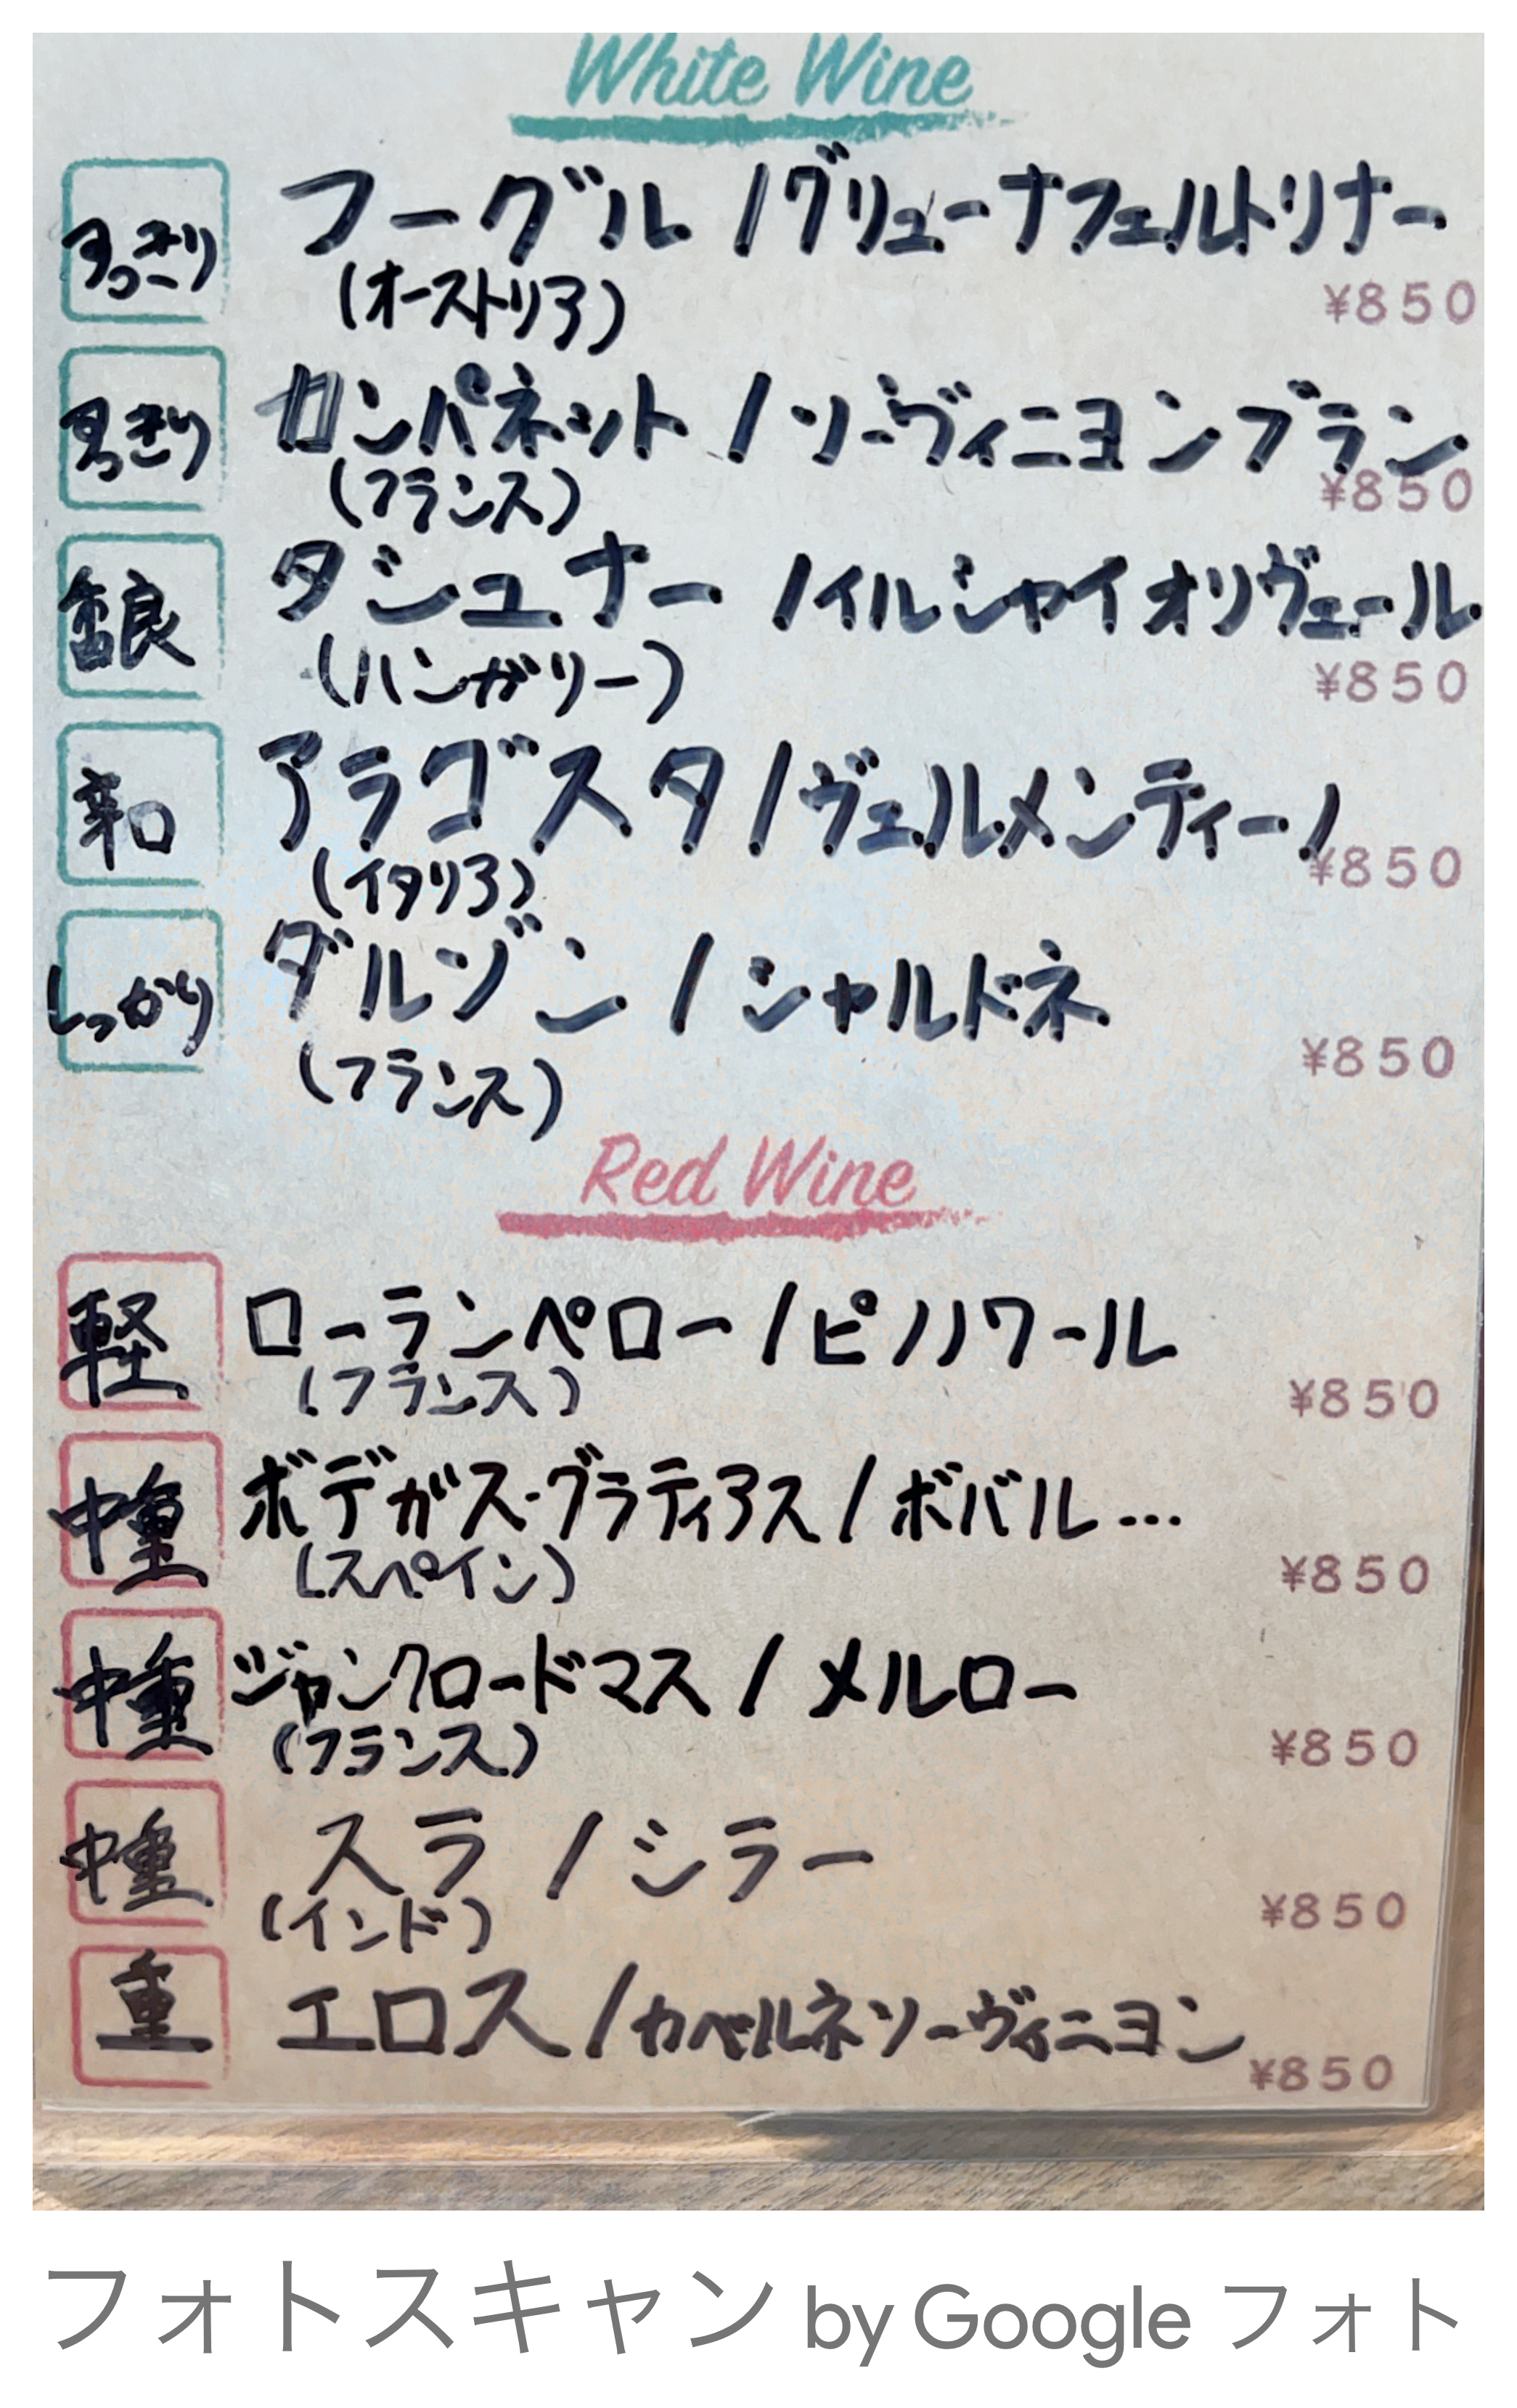 White Wine
すっきり フーグル / グリューナフェルトリナー
(オーストリア) ¥850
すっきり カンパネット / ソーヴィニヨンブラン
(フランス) ¥850
香 ダジュナー / イルシャイオリヴェール
(ハンガリー) ¥850
辛口 アラゴスタ / ヴェルメンティーノ
(イタリア) ¥850
しっかり ダルゾン / シャルドネ
(フランス) ¥850
Red Wine
軽 ローランペロー / ピノノワール
(フランス) ¥850
中重 ボデガス・グラティアス / ボバル…
(スペイン) ¥850
中重 ジャンクロードマス / メルロー
(フランス) ¥850
中重 スラ / シラー
(インド) ¥850
重 エロス / カベルネソーヴィニヨン
¥850
フォトスキャン by Google フォト